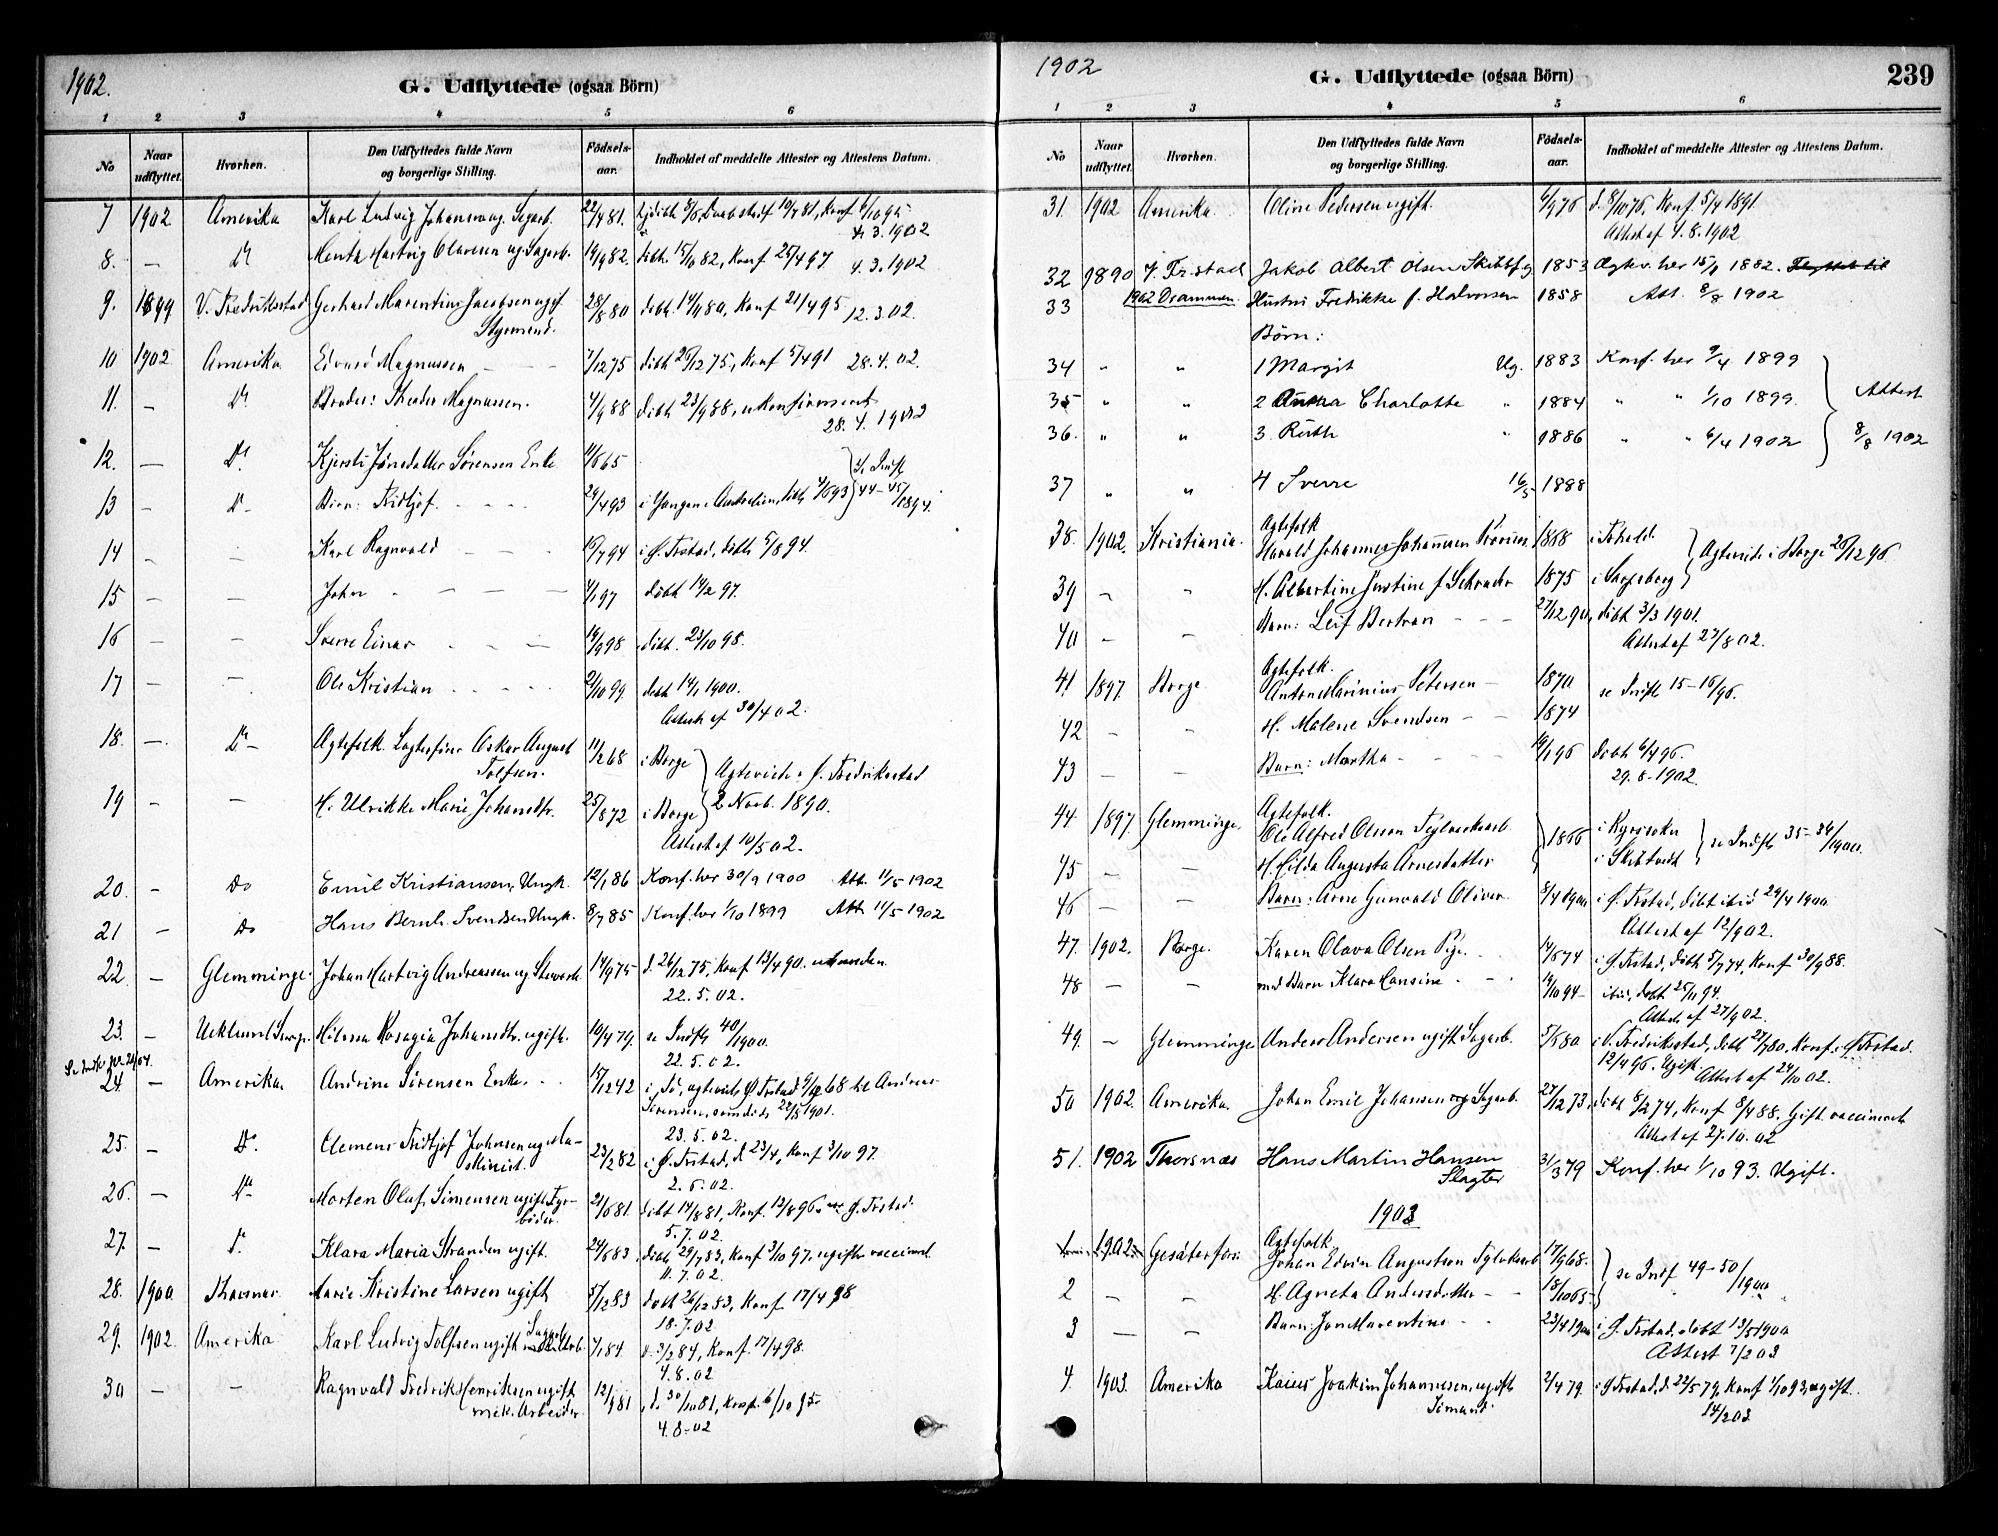 1902.
G. Udflyttede (ogsaa Börn)
1 2 3 4 5 6
No
Naar udflyttet.
Hvorhen.
Den Udflyttedes fulde Navn og borgerlige Stilling.
Födsels-aar.
Indholdet af meddelte Attester og Attestens Datum.
7 1902 Amerika Karl Ludvig Johansen ug. Sagarb. 22/4 81.
4.3.1902
8. — Do Hartvig Olavesen ug. Sagarb. 14/9 82. döbt. 15/10 82, Konf 25/4 97. 4.3.1902
9. 1899 V. Fredriksstad Gerhard Marentius Jacobsen ugif. 28/8 80 döbt. Konf 21/4 95 12.3.02.
Styrmand.
10 1902 Amerika Edvard Magnussen 7/12 75 döbt 26/12 75, Konf 5/4 91 28.4.02.
11. — Do Broder: Theodor Magnussen. 4/9 88 döbt 23/9 88, ukonfirmert
28.4.1902
12. — Do Kjersti Jönsdatter Sörensen Enke 11/6 65
13 — Do Börn: Fridtjof 24/4 93 i Australien, döbt 4/6 93 44-45/1894.
14 — — Karl Ragnvald 10/7 94 i Ø. Frstad, döbt 5/8 94.
15 — — John 4/1 97 döbt 14/2 97.
16 — — Sverre Einar 14/9 98 döbt. 23/10 98.
17 — — Ole Kristian 2/10 99 döbt 14/1 1900.
Attest af 30/4 02.
18. — Do Ægtefolk. Oskar August 11/2 68 i Borge
Tolfsen.
Ægteviede i Ø. Fredriksstad
19 — — H. Ulrikke Marie Johansdtr. 25/8 72 i Borge 2 Novb. 1890.
Attest af 10/5 02.
20. — Do Emil Kristiansen, Ungk. 12/1 86 Konf. her 30/9 1900 Att. 11/5 1902
21 — Do Hans Bernh. Svendsen Ungk. 8/7 85 Konf. her 1/10 1899 Att. 11/5 1902
22 — Glemminge. Johan Hartvig Andreassen ug 14/9 75 d. 26/12 75, Konf 13/4 90.
22.5.02.
23. — Johansdtr. ugift. 10/4 79. se Indfl 40/1900.
22.5.02.
24. — Amerika. Andrine Sörensen Enke 15/12 42
Sörensen,
23.5.02.
25. — Do Clemens Fridtjof Johnsen ug Maskinist. 23/2 82 i Ø. Frstad, d 23/4, Konf 3/10 97.
2.6.02.
26. — Do Morten Olaf Simensen ugift Fyrböder. 21/6 81. döbt 14/8 81, Konf. Ø. Frstad.
5.7.02.
27. — Do Klara Maria Stranden ugift. 24/6 83 döbt 29/7 83, Konf 3/10 97. ugift vaccineret
11.7.02.
28. 1900 Marie Kristine Larsen ugift 5/12 83 döbt 26/12 83, Konf. 17/4 98
18.7.02
29. 1902. Amerika Karl Ludvig Tolfsen ugift 7/1 84 d. 3/2 84, Konf. 17/4 98.
4.8.02
30 — — Ragnvald Fredrik Henriksen ugift 12/9 81 d. 30/10 81, Konf. 6/10 95
mek. Arbeider
4.8.02
1902
G. Udflyttede (ogsaa Börn)
239
1 2 3 4 5 6
No
Naar udflyttet.
Hvorhen.
Den Udflyttedes fulde Navn og borgerlige Stilling.
Födsels-aar.
Indholdet af meddelte Attester og Attestens Datum.
31. 1902 Amerika. Oline Pedersen ugift. 6/9 76 d. 8/10 76, Konf. 5/4 1891
Attest af 4.8.1902
32 1890 V. Fr.stad Jakob Albert Olsen 1853 Ægtev. her 1882.
33 1902 Drammen. Hustru Fredrikke f. Halvorsen 1858 Att. 8/8 1902
Börn:
34 " " 1 Margit Ug. 1883 Konf. her 9/4 1899
35 " " 2 Anna Charlotte " 1884 " " 1/10 1899. Attest
36. " " 3. Ruth " 1886 " " 6/4 1902 8/8 1902
37 " " 4 Sverre 16/5 1888
38. 1902. Kristiania. Ægtefolk
Harald Johannes Johannsen 1868 i Frhald.
Ægteviede i Borge 26/12 96
39 — " H. Albertine Justine f. Schrader 1875 i Sarpsborg
40 — — Barn: Leif Bertran 27/12 90, döbt 3/3 1901.
Attest af 27/8 02.
41 1897. Borge. Ægtefolk.
Anton Marinius Petersen 1870 se Indfl 15-16/96.
42 — " H. Malene Svendsen 1874
43 — — Barn: Martha 19/1 96 döbt 6/4 96.
29.8.1902.
44 1897. Glemminge. Ægtefolk.
Ole Alfred Olsen Teglverksarb. 1866 se Indfl 35-36/1900.
45 — — H. Hilda Augusta Arnesdatter i Skibtvedt
46 — — Barn: Arne Gunvald Oliver 8/4 1900 i Ø. Frstad, döbt ibid 29/4 1900
Attest af 12/9 02.
47. 1902. Borge. Karen Olava Olsen Pige. 14/6 74 i Ø. Frstad, döbt 5/7 74, Konf 30/9 88.
48 — — med Barn Klara Hansine 14/10 94 ibid, döbt 25/11 94.
Attest af 27/9 02.
49. — Glemminge Anders Andersen ugift Sagarb. 5/6 80 i V. Fredriksstad, döbt 27/7 80, Konf. i Ø. Frstad.
12/4 96. Ugift. Attest af 24/10 02.
50 1902. Amerika. Johan Emil Johansen ug Sagarb. 27/12 73, döbt 8/2 74, Konf 8/4 88. Gift. vaccineret
Attest af 27.10.02
51. 1902 Thorsnæs Hans Martin Hansen 31/3 79 Konf. her 1/10 93. Ugift.
Slagter
1903
1 1902 Ægtefolk.
Johan Edvin Angustson 17/9 68. se Indf 49-50/1900
2 — — H. Agneta Andersdotter 18/10 65
3 — — Barn: Jon Marentius 23/4 1900 i Ø. Frstad, döbt 13/5 1900
Attest 7/2 03
4. 1903. Amerika Kaius Joakim Johannesen, ugift 2/4 79. i Ø Frstad, d. 22/5 79, Konf 1/10 93, ugift.
Sömand.
14/2 03